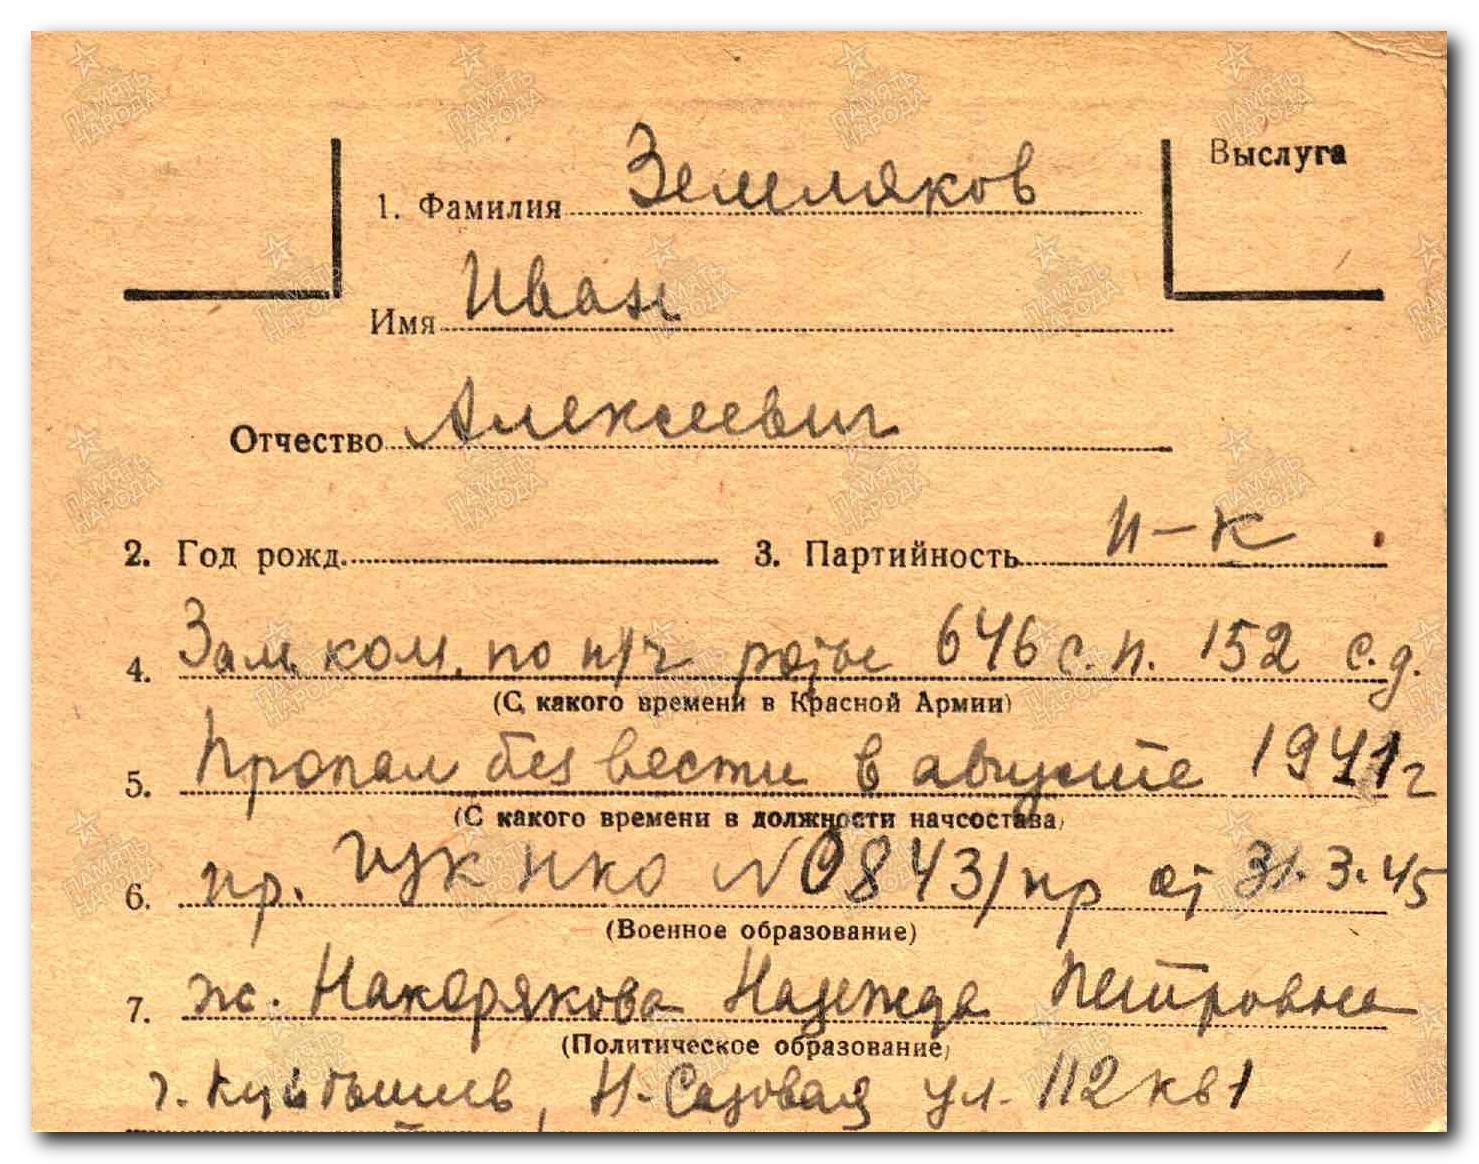 Выслуга
1. Фамилия Земляков
Имя Иван
Отчество Алексеевич
2. Год рожд. 3. Партийность п-к
4. Зам. ком. по п/ч роты 646 с.п. 152 с.д.
(С какого времени в Красной Армии)
5. Пропал без вести в августе 1941г
(С какого времени в должности начсостава)
6. пр. ГУК НКО № 0843/пр от 31.3.45
(Военное образование)
7. ж. Накорякова Надежда Петровна
(Политическое образование)
г. Куйбышев, Н-Садовая ул. 112 кв 1
ПАМЯТЬ НАРОДА